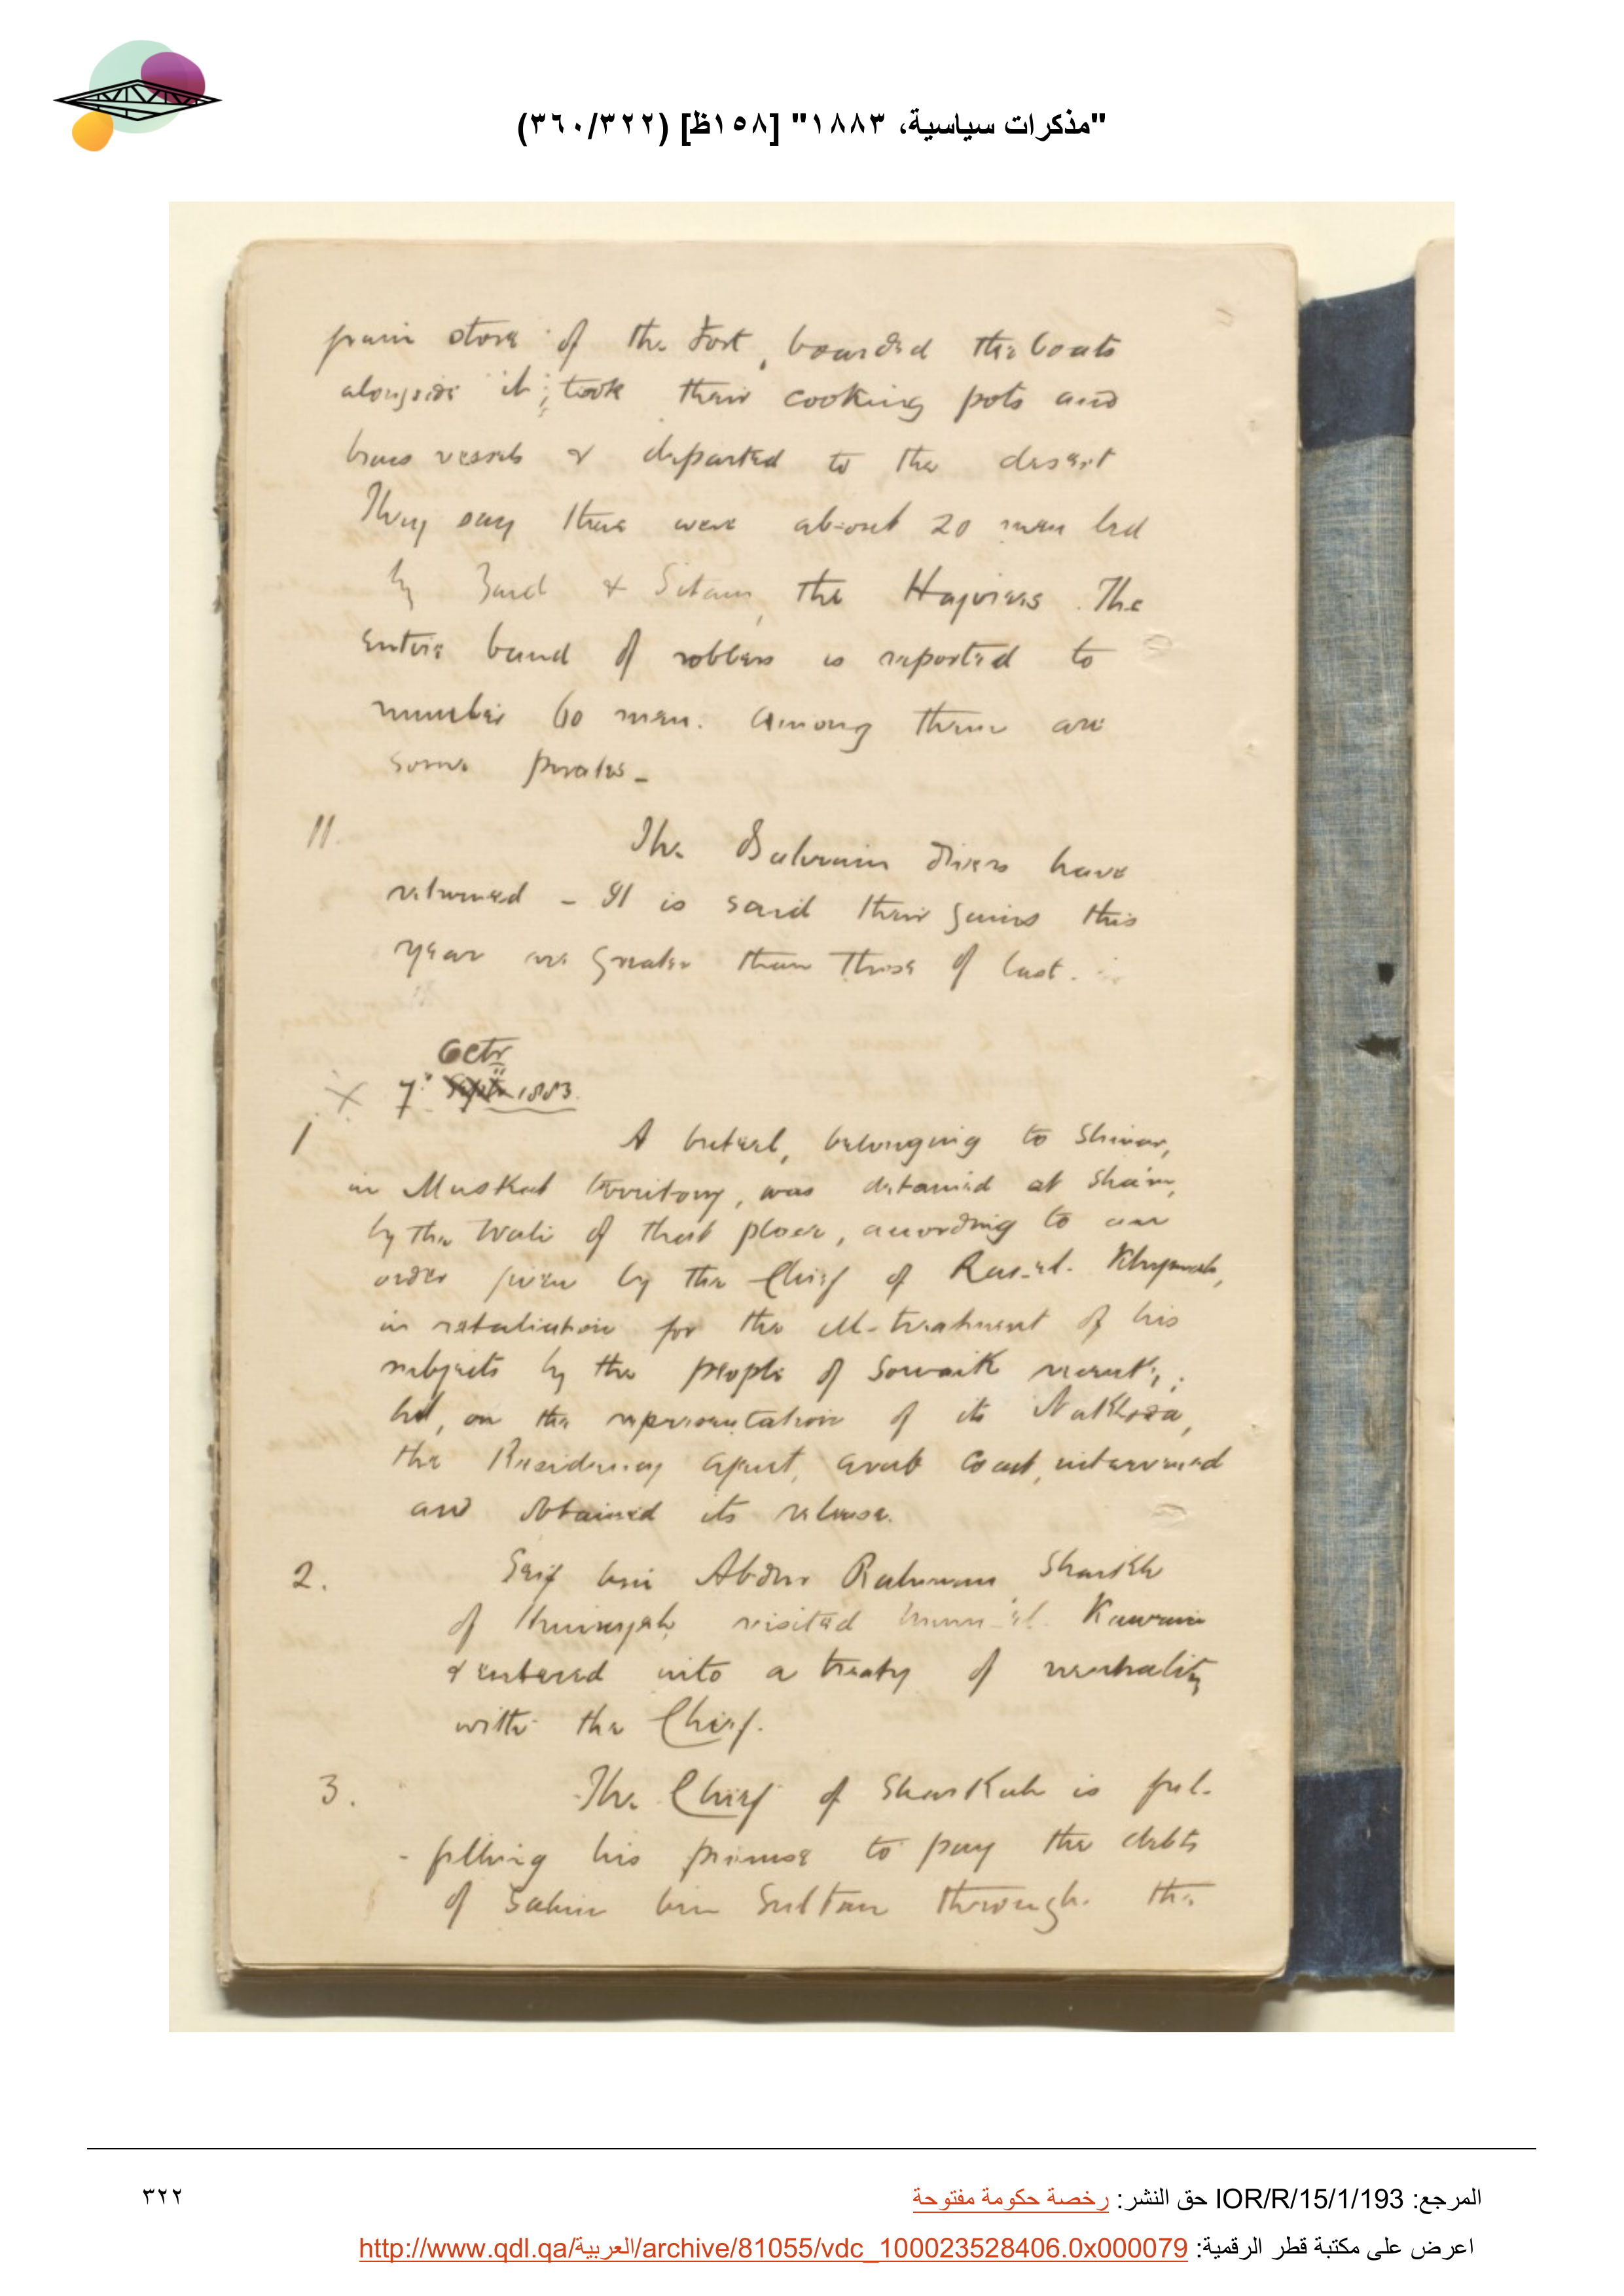 "مذكرات سياسية، ١٨٨٣" [١٥٨ظ] (٣٦٠/٣٢٢)
grain store of the Fort, boarded the boats
alongside it; took their cooking pots and
brass vessels & departed to the desert
They say there were about 20 men led
by Zaid & the Hajirees. The
entire band of robbers is reported to
number 60 men. Among them are
some pirates -
11. The Bahrain divers have
returned - It is said their gains this
year are greater than those of last.
Octr
× 7th Septr 1883.
1 A buteel, belonging to Shinas,
in Muskat territory, was detained at Sha'm,
by the Wali of that place, according to an
order given by the Chief of Ras-el-Khymah,
in retaliation for the ill-treatment of his
subjects by the people of Sowaik recently;
but, on the representation of its Nakhoda,
the Residency Agent, Arab Coast, intervened
and obtained its release.
2. Seif bin Abdur Rahman Shaikh
of visited Umm-el-Kawain
& entered into a treaty of neutrality
with the Chief.
3. The Chief of Sharkah is ful-
-filling his promise to pay the debts
of Salim bin Sultan through the
المرجع: IOR/R/15/1/193 حق النشر: رخصة حكومة مفتوحة
٣٢٢
اعرض على مكتبة قطر الرقمية: http://www.qdl.qa/العربية/archive/81055/vdc_100023528406.0x000079